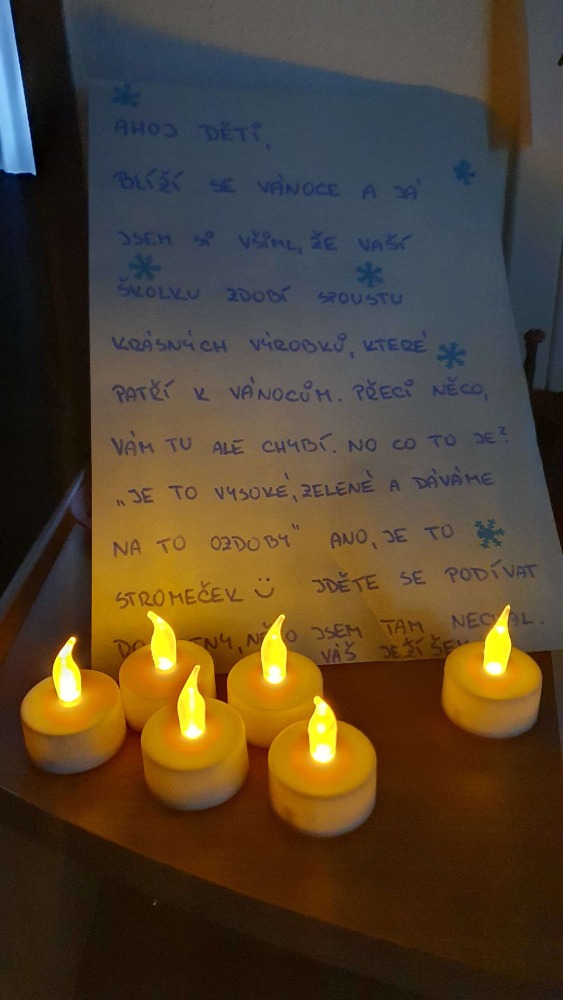 AHOJ DĚTI,
BLÍŽÍ SE VÁNOCE A JÁ
JSEM SI VŠIML, ŽE VAŠÍ
ŠKOLKU ZDOBÍ SPOUSTU
KRÁSNÝCH VÝROBKŮ, KTERÉ
PATŘÍ K VÁNOCŮM. PŘECI NĚCO,
VÁM TU ALE CHYBÍ. NO CO TO JE?
„JE TO VYSOKÉ, ZELENÉ A DÁVÁME
NA TO OZDOBY" ANO, JE TO
STROMEČEK Ü JDĚTE SE PODÍVAT
JSEM TAM NECHAL.
VÁŠ JEŽÍŠEK